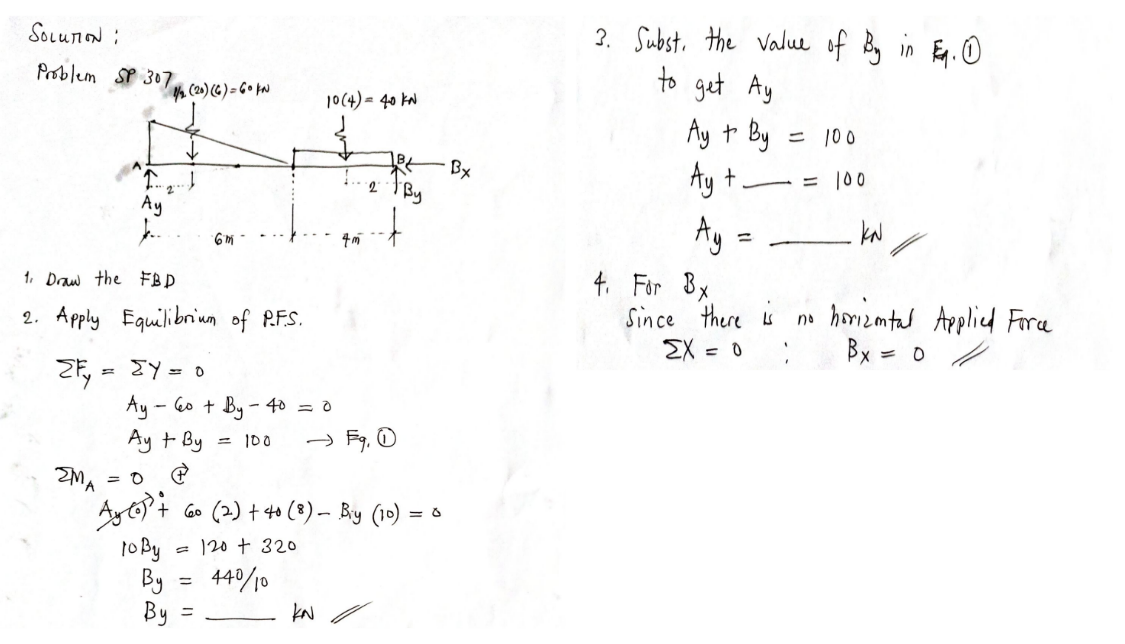 SOLUTION :
Problem SP 307
1/2 (20)(6) = 60 kN
10(4) = 40 kN
A
B
Bx
2
2
By
Ay
6m
4m
1. Draw the FBD
2. Apply Equilibrium of P.F.S.
ΣFy = ΣY = 0
Ay - 60 + By - 40 = 0
Ay + By = 100 → Eq. ①
ΣMA = 0 ⊕
Ay(0) 0 + 60 (2) + 40 (8) - By (10) = 0
10By = 120 + 320
By = 440/10
By = ____ kN //
3. Subst. the value of By in Eq. ①
to get Ay
Ay + By = 100
Ay + ____ = 100
Ay = ____ kN //
4. For Bx
Since there is no horizontal Applied Force
ΣX = 0 ; Bx = 0 //